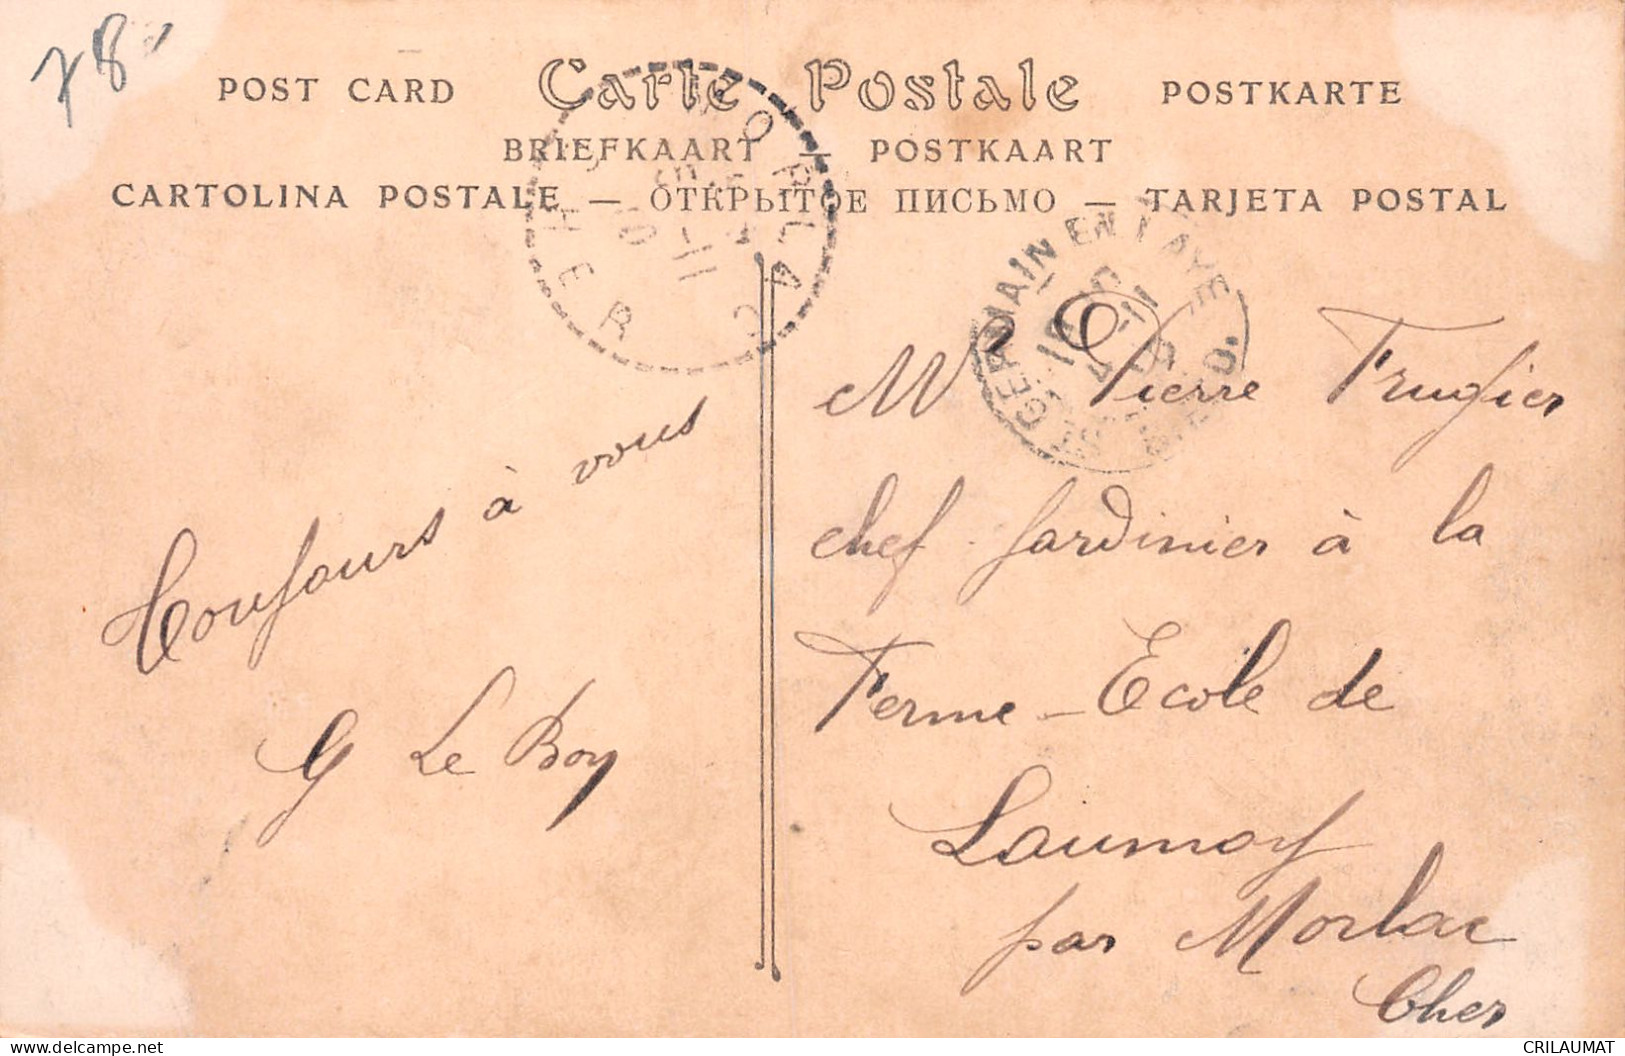 78
POST CARD Carte Postale POSTKARTE
BRIEFKAART — POSTKAART
CARTOLINA POSTALE — ОТКРЫТОЕ ПИСЬМО — TARJETA POSTAL
MORLAC
CHER
ST GERMAIN EN LAYE
Toujours à vous
G Le Boy
Mr Pierre Frugier
chef jardinier à la
Ferme-Ecole de
Laumoy
par Morlac
Cher
CRILAUMAT